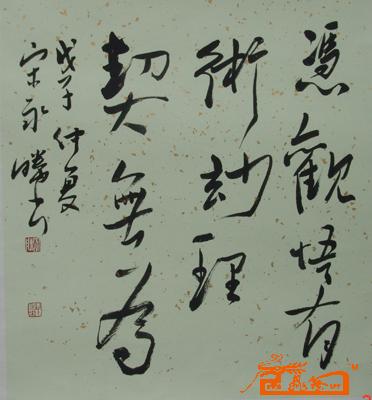 憑觀悟有
術妙理
契無為
戊子仲夏
宋永勝书